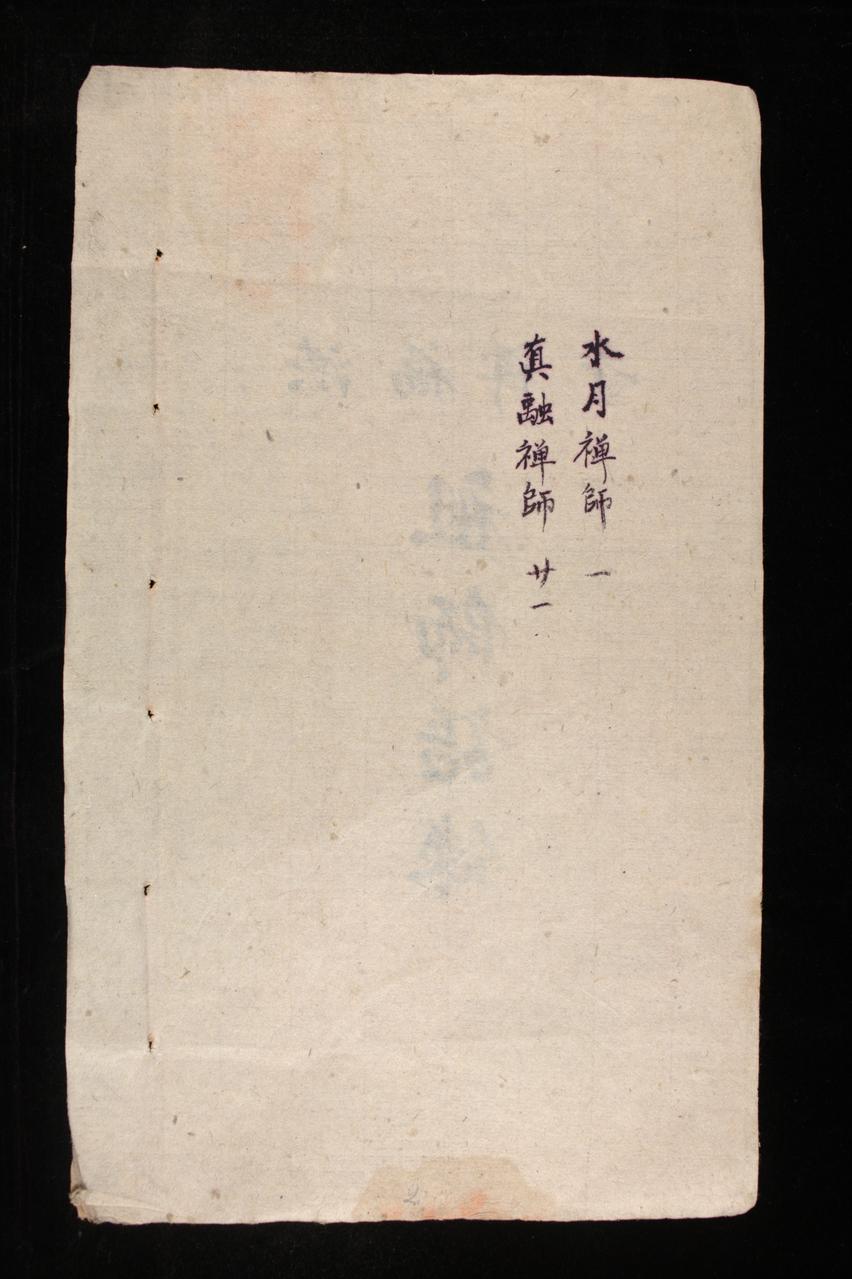 水月禅師 一
真融禅師 廿一
2